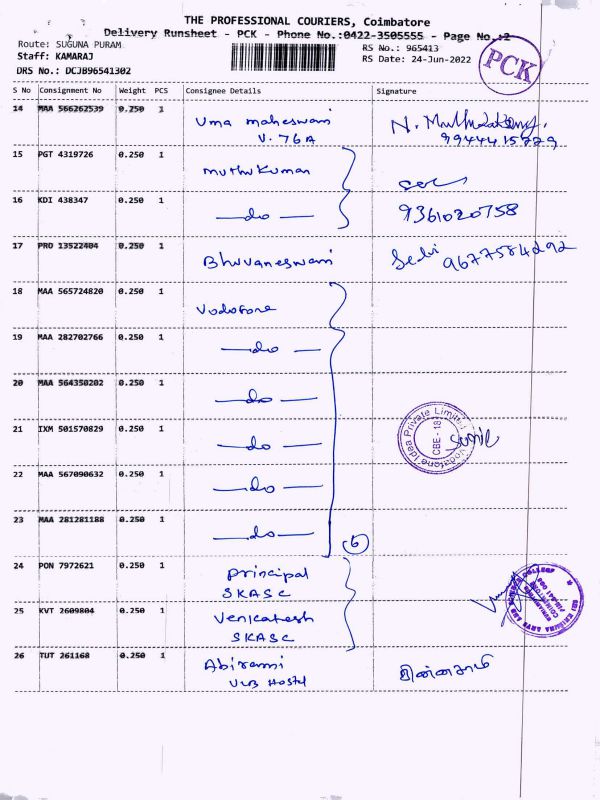 THE PROFESSIONAL COURIERS, Coimbatore
Delivery Runsheet - PCK - Phone No.:0422-3505555 - Page No.:2
Route: SUGUNA PURAM
Staff: KAMARAJ
DRS No.: DCJB96541302
RS No.: 965413
RS Date: 24-Jun-2022
PCK
S No Consignment No Weight PCS Consignee Details Signature
14 MAA 566262539 0.250 1 Uma maheswari
V. 76A
15 PGT 4319726 0.250 1 muthu Kumar
16 KDI 438347 0.250 1 —do— 9361020758
17 PRO 13522404 0.250 1 Bhuvaneswari Selvi
18 MAA 565724820 0.250 1 Vodofone
19 MAA 282702766 0.250 1 —do—
20 MAA 564350202 0.250 1 —do—
21 IXM 501570829 0.250 1 —do—
Vodafone Idea Private Limited
CBE - 18
22 MAA 567090632 0.250 1 —do—
23 MAA 281281188 0.250 1 —do— 6
24 PON 7972621 0.250 1 principal
SKASC
25 KVT 2609804 0.250 1 Venkatesh
SKASC
26 TUT 261168 0.250 1 Abirami
Hostel